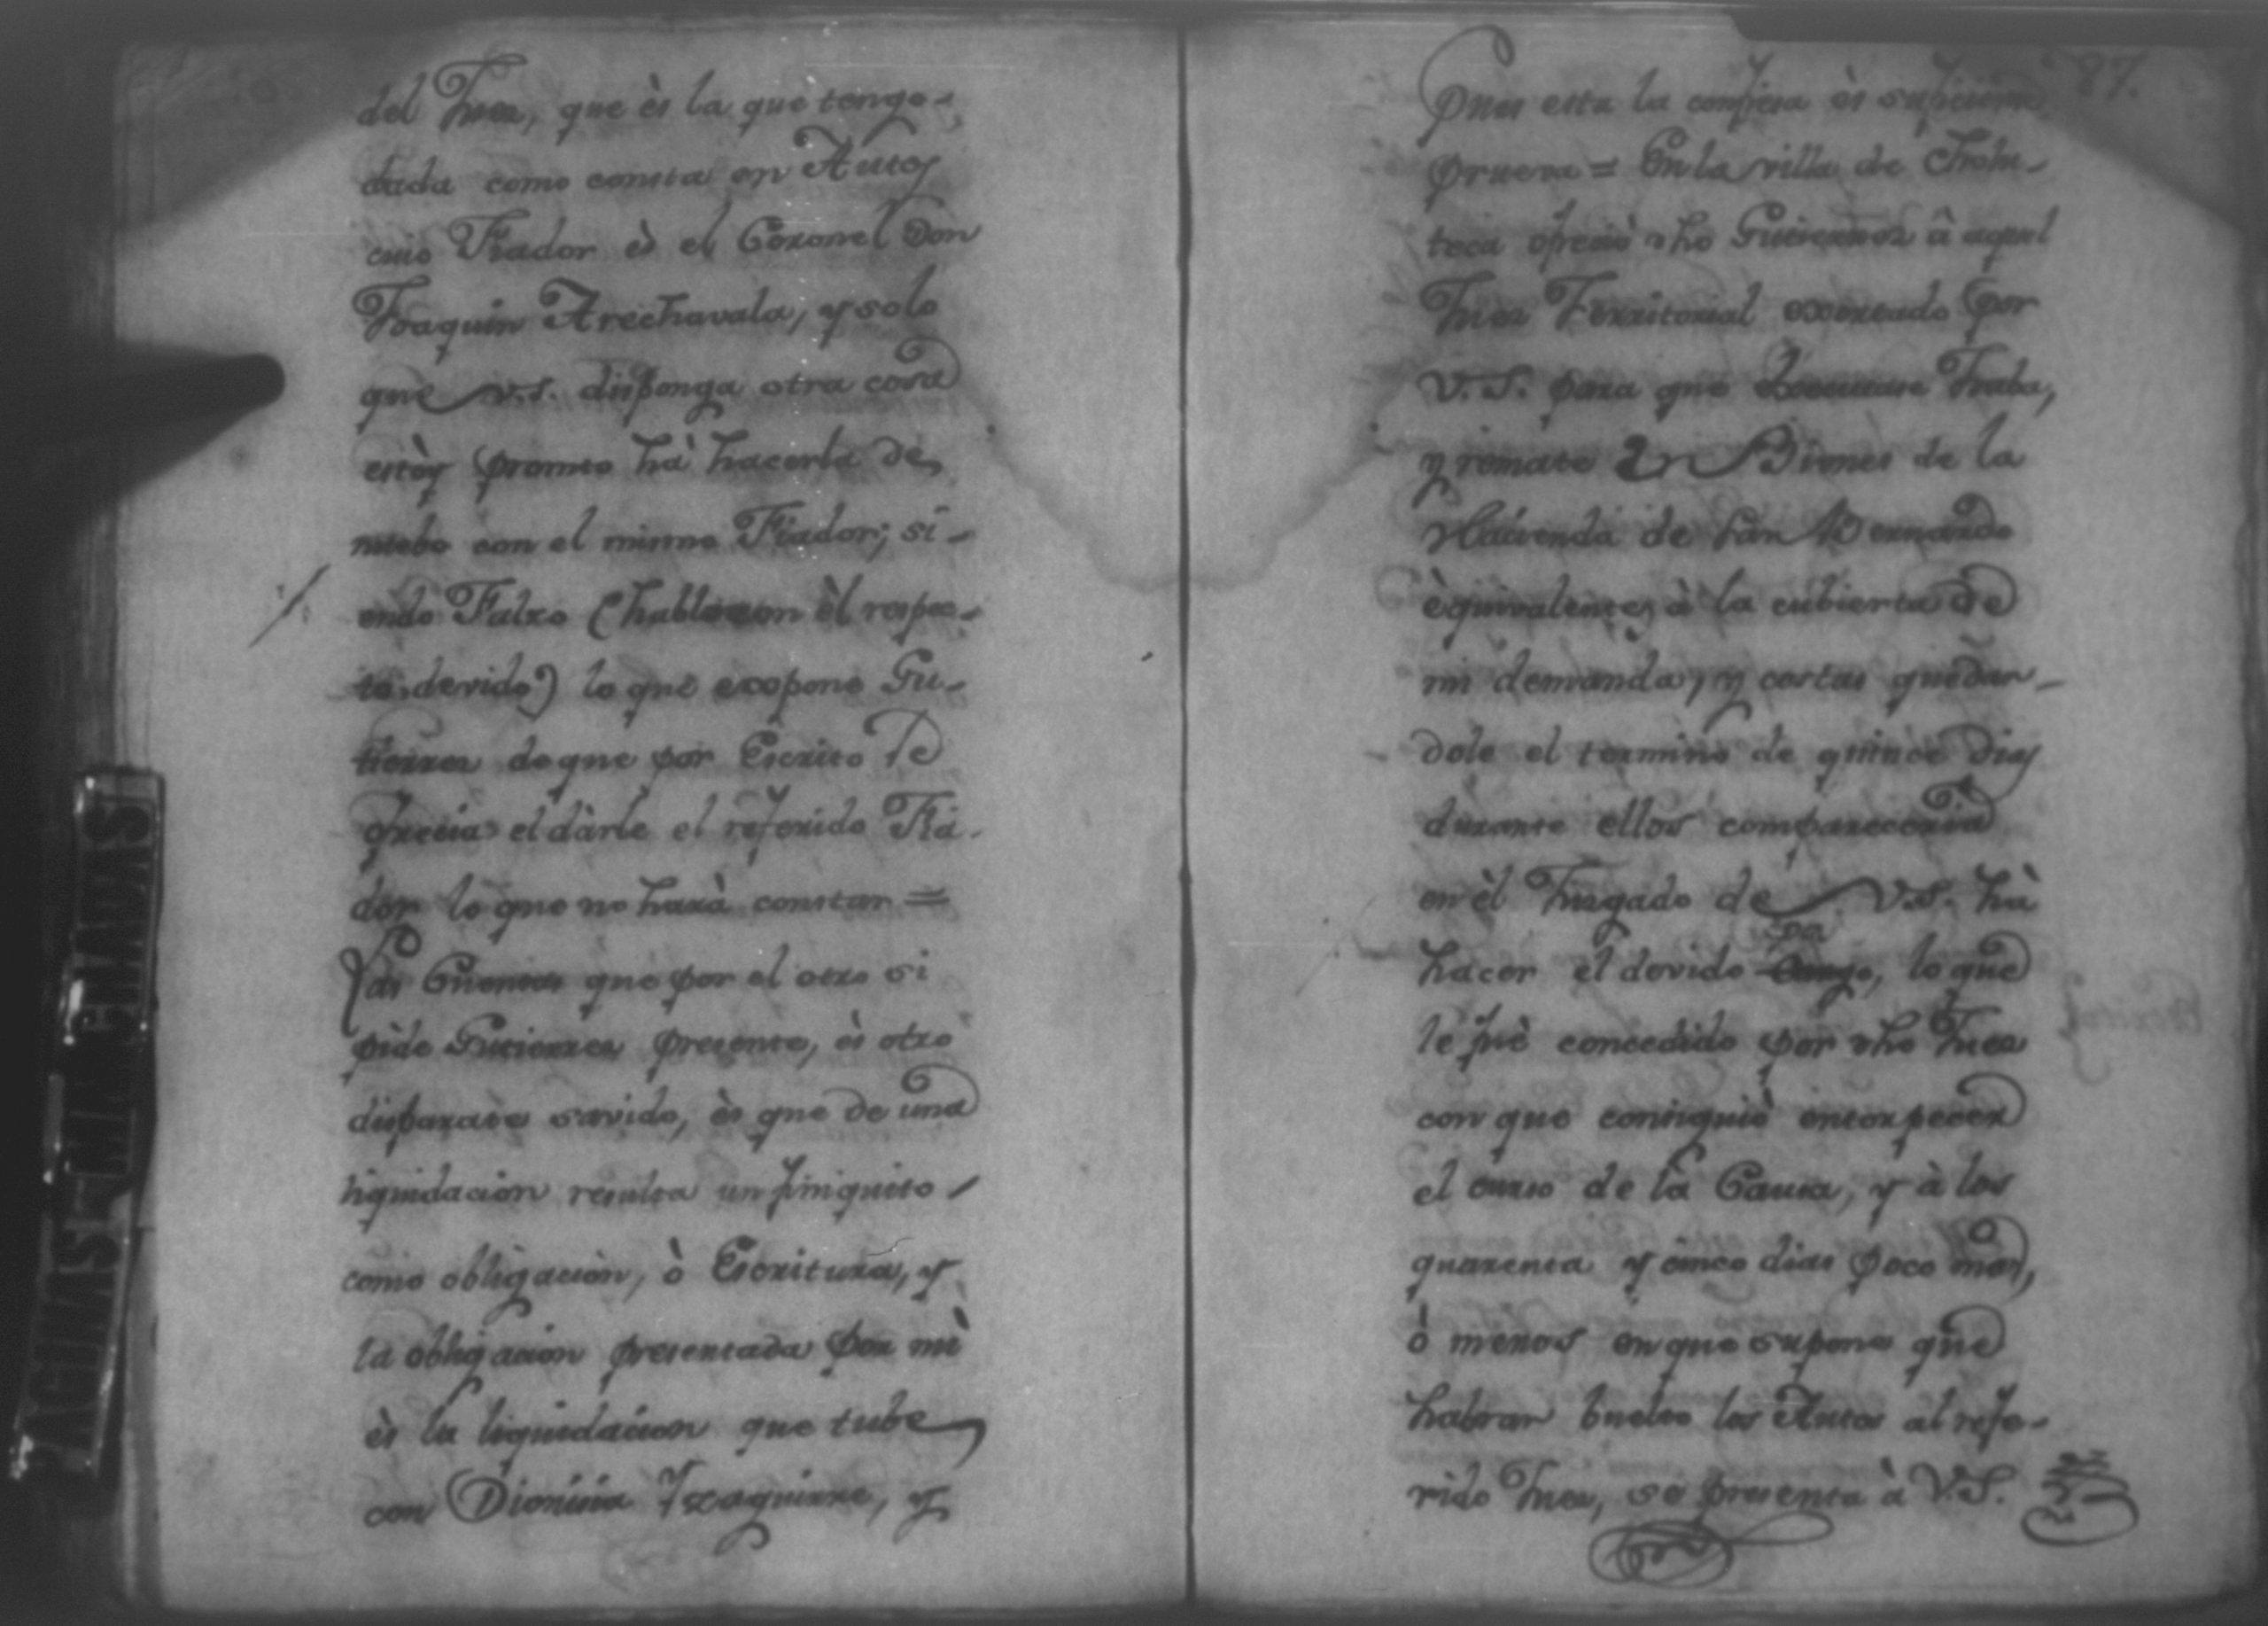 del Juez, que ès la que tengo-
dada como consta en Autos
cuio Fiador ès el Coronel Don
Joaquin Arechavala, y solo
que V.S. disponga otra cosa
estòy promto hà hacerla de
nuebo con el mismo Fiador; si-
endo Falzo (hablo con èl respec-
to devido) lo que expone Gu-
tierrez de que por Escrito se
ofrecia el dàrle el referido Fia-
dor lo que no harà constar =
Las Cuentas que por el otro si
pide Gutierrez presente, ès otro
disparate savido, ès que de una
liquidacion resulta un finiquito
como obligacion, ò Escritura, y
la obligacion presentada por mì
ès la liquidacion que tube
con Dionicia Yzaguirre, y
87.
Pues esta la confiesa ès suficiente
prueva = En la villa de Cholu-
teca ofreciò dho Gutierrez à aquel
Juez Territorial exortado por
V.S. para que Traba,
y remate en Bienes de la
Hacienda de San Bernardo
èquivalentes à la cubierta de
mi demanda, y costas quedan-
dole el termino de quince dias
durante ellos compareceria
en èl Juzgado de V.S. hà
hacer el devido pago, lo que
le fuè concedido por dho Juez
con que consiguiò entorpecer
el curso de la Causa, y à los
quarenta y cinco dias poco mas,
ò menos en que supone que
habran buelto los Autos al refe-
rido Juez, se presenta à V.S.